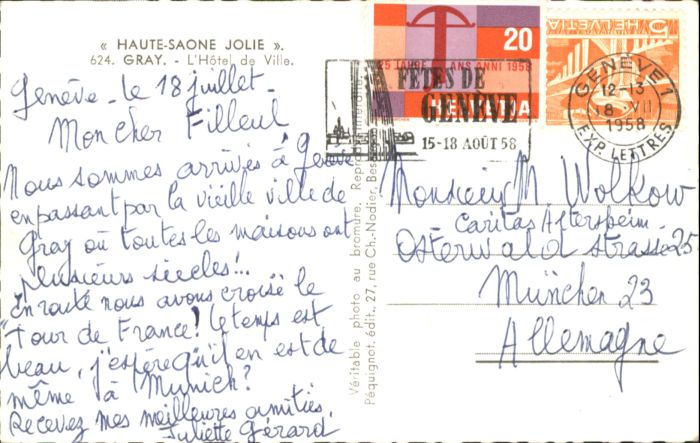 « HAUTE-SAONE JOLIE ».
624. GRAY. - L'Hôtel de Ville.
Genève - le 18 juillet -
Mon cher Filleul
Nous sommes arrivés à Genève
en passant par la vieille ville de
Gray où toutes les maisons ont
plusieurs siècles!..
En route nous avons croisé le
"Tour de France! le temps est
beau, j'espère qu'il en est de
même à Munich?
Recevez mes meilleures amitiés.
Juliette Gérard
Véritable photo au bromure. Reproduction interdite.
Péquignot, édit., 27, rue Ch.-Nodier, Bes
20
25 JAHRE ANS ANNI 1958
HELVETIA
5
HELVETIA
FÊTES DE
GENÈVE
15-18 AOÛT 58
GENÈVE 1
12-13
8 VII
1958
EXP. LETTRES
Monsieur M. Wolkow
Caritas Altersheim.
Osterwaldstrasse 25
München 23
Allemagne